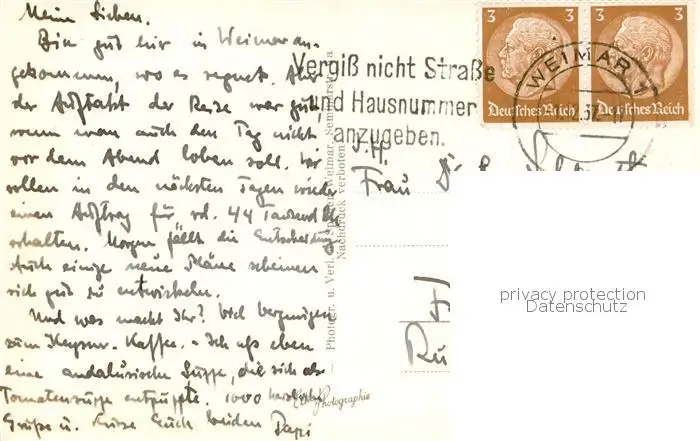 Meine Lieben.
Bin gut hier in Weimar an-
gekommen, wo es regnet. Aber
der Auftakt der Reise war gut,
wenn man auch den Tag nicht
vor dem Abend loben soll. Wir
sollen in den nächsten Tagen wieder
einen Auftrag für rd. 44 Tausend
erhalten. Morgen fällt die Entscheidung
Auch einige neue Pläne scheinen
sich gut zu entwickeln.
Und was macht Ihr? Viel Vergnügen
zum Keyser-Kaffee. - Ich aß eben
eine andalusische Suppe, die sich als
Tomatensuppe entpuppte. 1000 herzliche
Grüße u. Küsse Euch beiden Papi
3
3
Deutsches Reich
Deutsches Reich
WEIMAR 1
Vergiß nicht Straße
und Hausnummer
anzugeben.
Frau
Photogr. u. Verl. Weimar,
Nachdruck verboten
Echte Photographie
privacy protection
Datenschutz